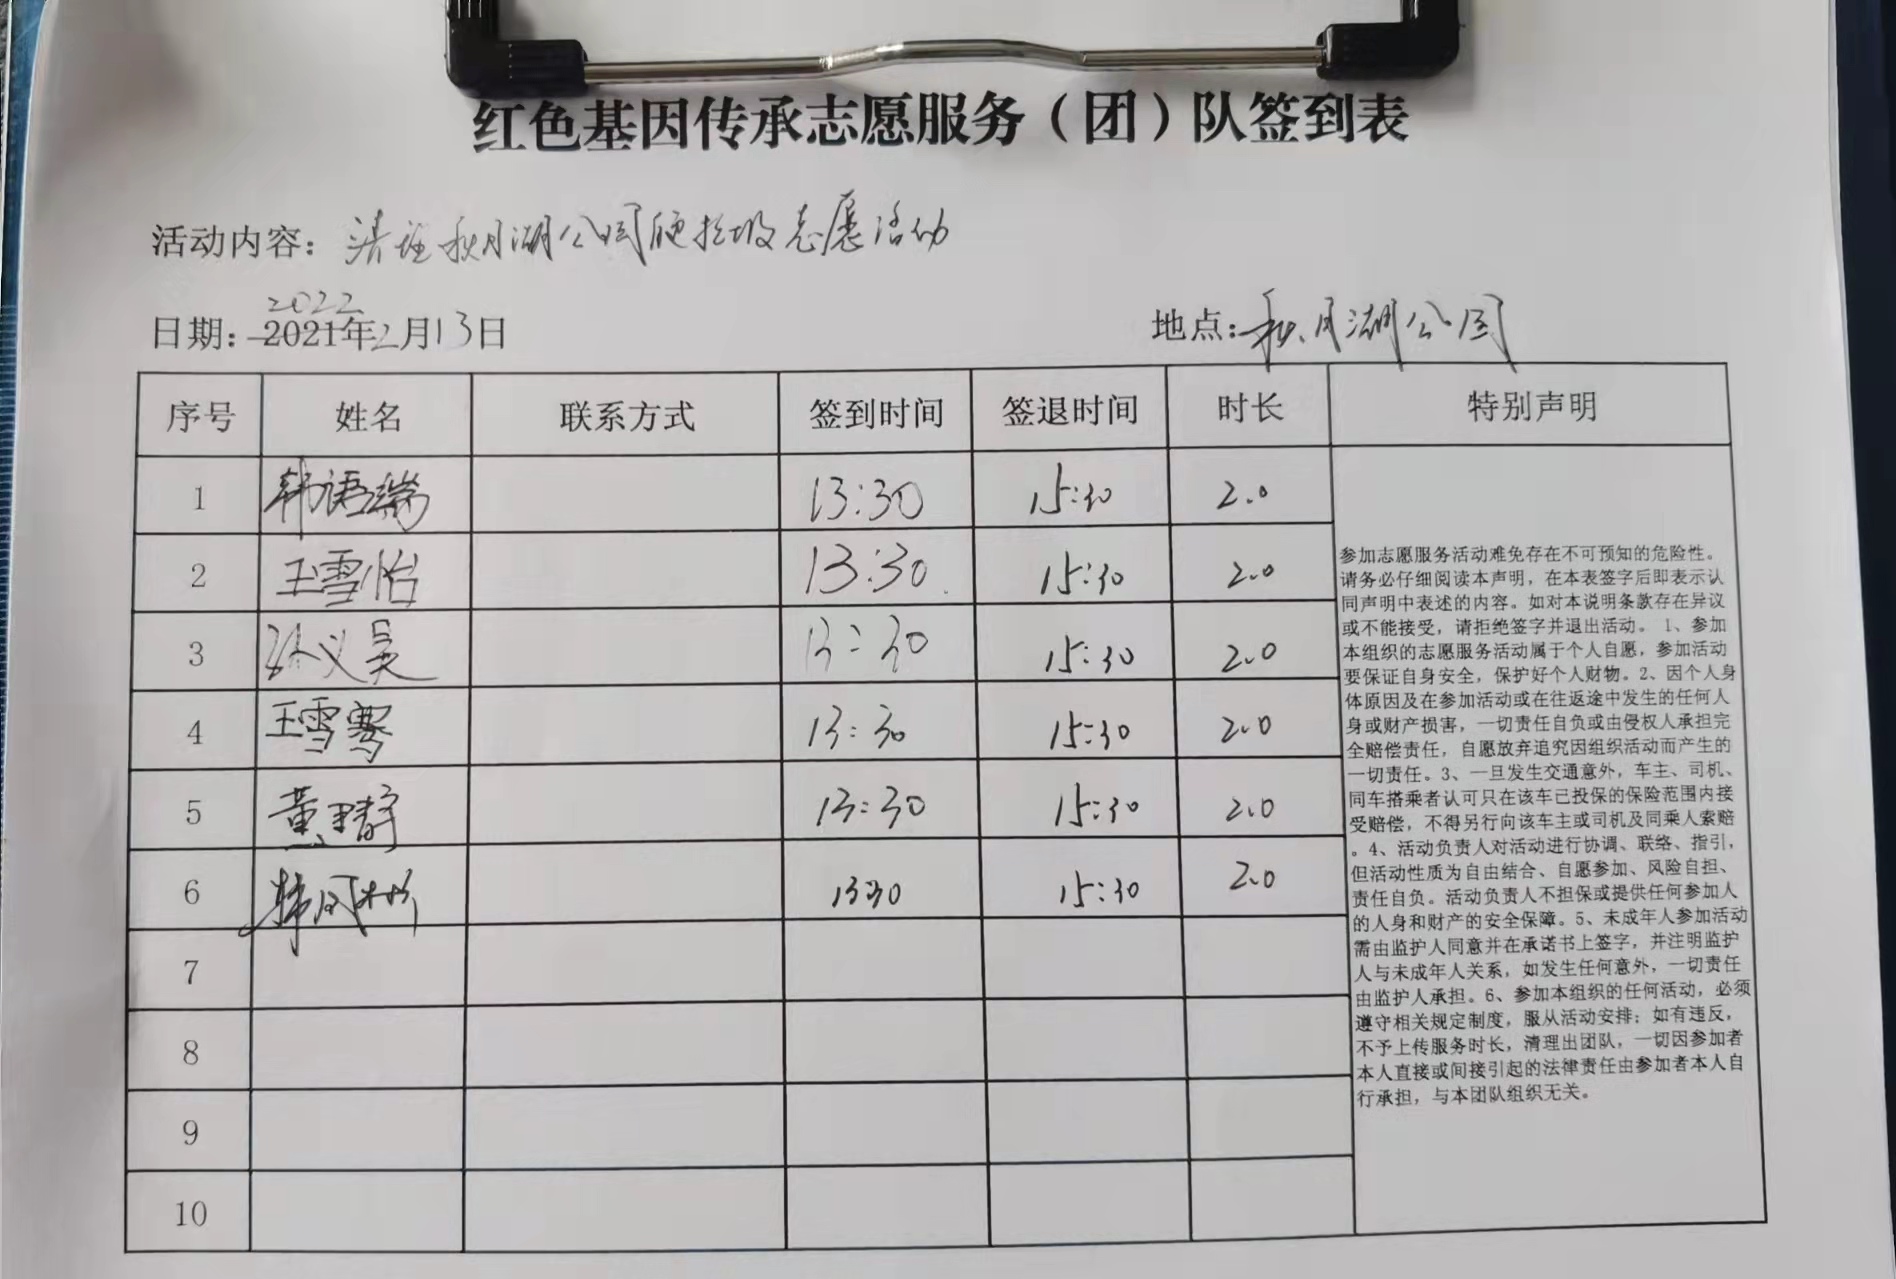 红色基因传承志愿服务（团）队签到表
活动内容：清理秋月湖公园废垃圾志愿活动
2022
日期：2021年2月13日 地点：秋月湖公园
序号 姓名 联系方式 签到时间 签退时间 时长 特别声明
1 韩语瑞 13:30 15:30 2.0
2 王雪怡 13:30 15:30 2.0
3 孙义昊 13:30 15:30 2.0
4 王雪骞 13:30 15:30 2.0
5 黄 13:30 15:30 2.0
6 韩风彬 13:30 15:30 2.0
7
8
9
10
参加志愿服务活动难免存在不可预知的危险性。
请务必仔细阅读本声明，在本表签字后即表示认
同声明中表述的内容。如对本说明条款存在异议
或不能接受，请拒绝签字并退出活动。1、参加
本组织的志愿服务活动属于个人自愿，参加活动
要保证自身安全，保护好个人财物。2、因个人身
体原因及在参加活动或在往返途中发生的任何人
身或财产损害，一切责任自负或由侵权人承担完
全赔偿责任，自愿放弃追究因组织活动而产生的
一切责任。3、一旦发生交通意外，车主、司机、
同车搭乘者认可只在该车已投保的保险范围内接
受赔偿，不得另行向该车主或司机及同乘人索赔
。4、活动负责人对活动进行协调、联络、指引，
但活动性质为自由结合、自愿参加、风险自担、
责任自负。活动负责人不担保或提供任何参加人
的人身和财产的安全保障。5、未成年人参加活动
需由监护人同意并在承诺书上签字，并注明监护
人与未成年人关系，如发生任何意外，一切责任
由监护人承担。6、参加本组织的任何活动，必须
遵守相关规定制度，服从活动安排；如有违反，
不予上传服务时长，清理出团队，一切因参加者
本人直接或间接引起的法律责任由参加者本人自
行承担，与本团队组织无关。